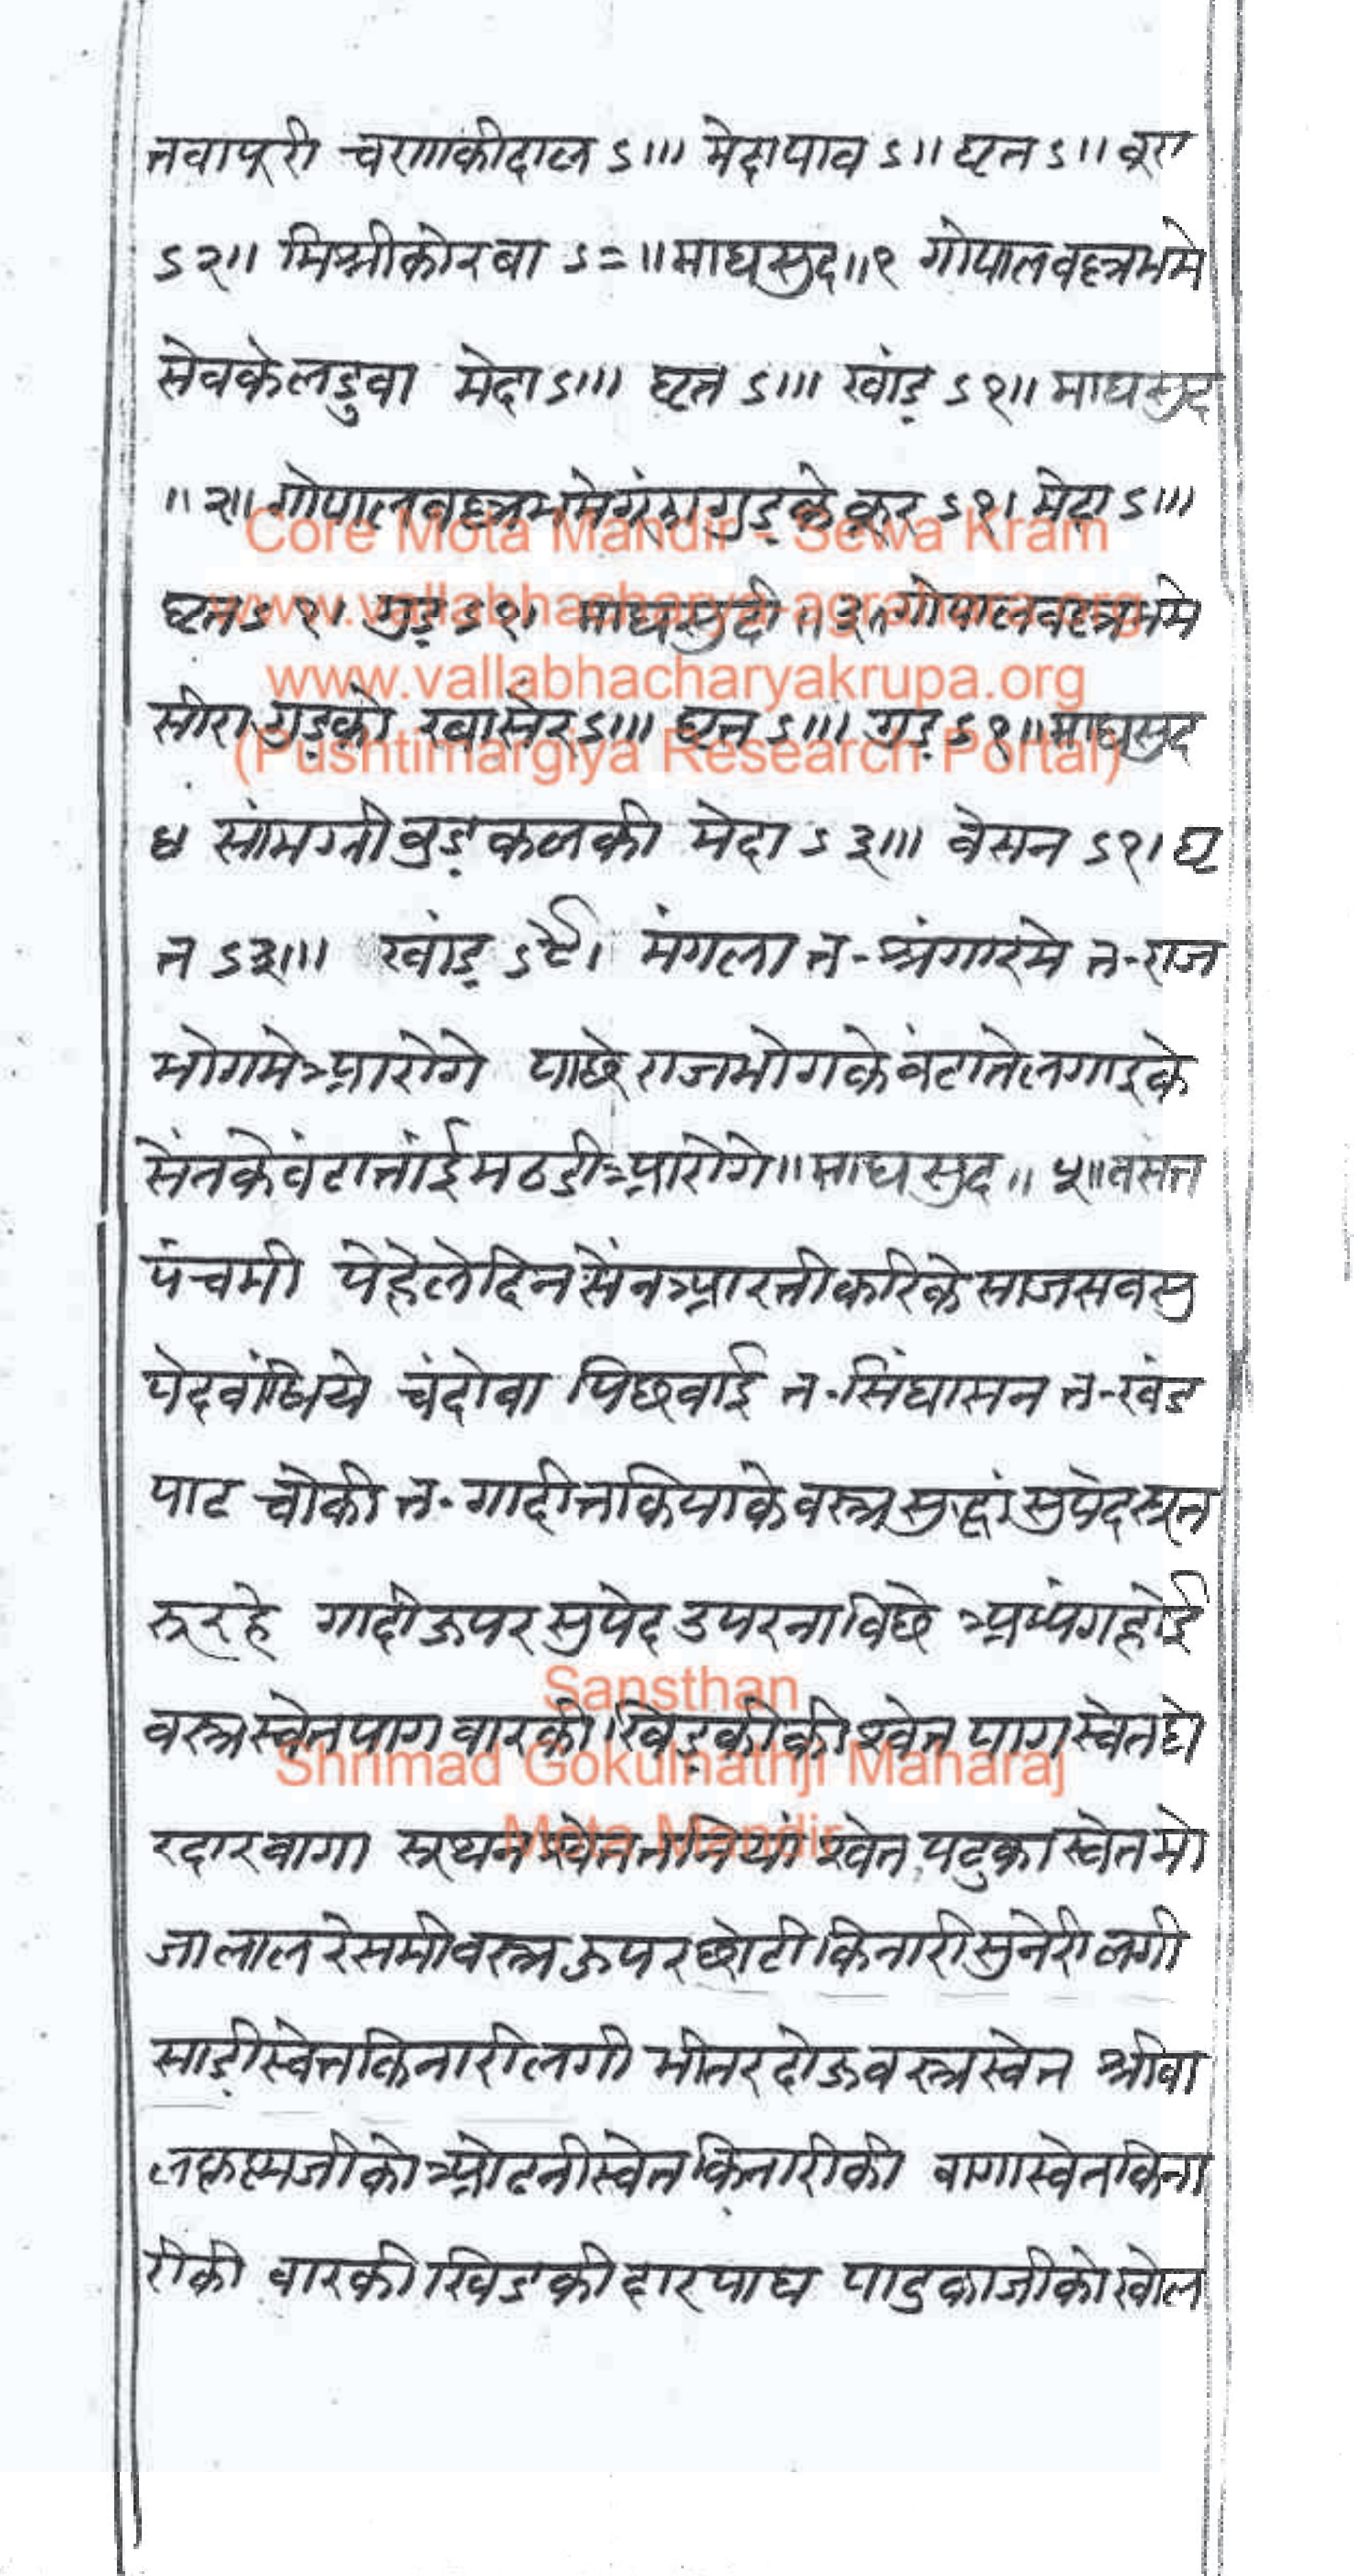 तवापूरी चणाकीदाल ऽ۱۱۱ मेदापाव ऽ॥ घृत ऽ॥ बूरा
ऽ२॥ मिश्रीकोरवा ऽ=॥माघसुद॥१ गोपालवल्लभमे
सेवकेलडुवा मेदाऽ॥। घृत ऽ॥। खांड़ ऽ१॥ माघसुद
॥२॥ गोपालवल्लभमे गुड़के कूर ऽ१। मेदा ऽ॥।
घृतऽ१। गुड़ ऽ१। माघसुदी ॥३॥गोपालवल्लभमे
सीरा गुड़को रवासेरऽ॥। घृत ऽ॥। गुड़ ऽ१॥माघसुद
४ सांमग्री बुड़कलकी मेदा ऽ३॥। बेसन ऽ१। घृ
त ऽ३॥। खांड़ मंगला त-श्रंगारमे त-राज
भोगमेआरोगे पाछे राजभोगकेबंटातेलगाइके
सेंनकेबंटातांईमठडीआरोगे॥माघ सुद॥ ५॥वसंत
पंचमी पेहेलेदिनसेंनआरतीकरिकेसाजसबसु
पेदबांधिये चंदोवा पिछवाई त-सिंघासन त-खंड
पाट चोकी त-गादीतकियाकेवस्त्रसुद्धांसुपेदस्घन
रूरहे गादीऊपरसुपेद उपरनाबिछे अभ्यंगहोई
वस्त्रस्वेतपाग वारकी।खिड़कीकी श्वेत पाग स्वेतघे
रदारवागा सूथनस्वेत तनियां स्वेत पटुका स्वेतमो
जालाल रेसमीवस्त्रऊपरछोटीकिनारीसुनेरीलगी
साड़ीस्वेतकिनारीलगी भीतरदोऊवस्त्रस्वेत श्रीबा
लकृष्णजीकोओढनीस्वेतकिनारीकी वागास्वेतकिना
रीकी वारकीखिडकीदारपाघ पादुकाजीकोखोल
Core Mota Mandir - Sewa Kram
www.vallabhacharya-agrahara.org
www.vallabhacharyakrupa.org
(Pushtimargiya Research Portal)
Sansthan
Shrimad Gokulnathji Maharaj
Mota Mandir